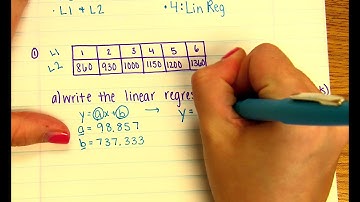 · L1 & L2 · 4: Lin Reg
① L1 1 2 3 4 5 6
L2 860 930 1000 1150 1200 1360
a) Write the linear regres
y = ax + b → y =
a = 98.857
b = 737.333